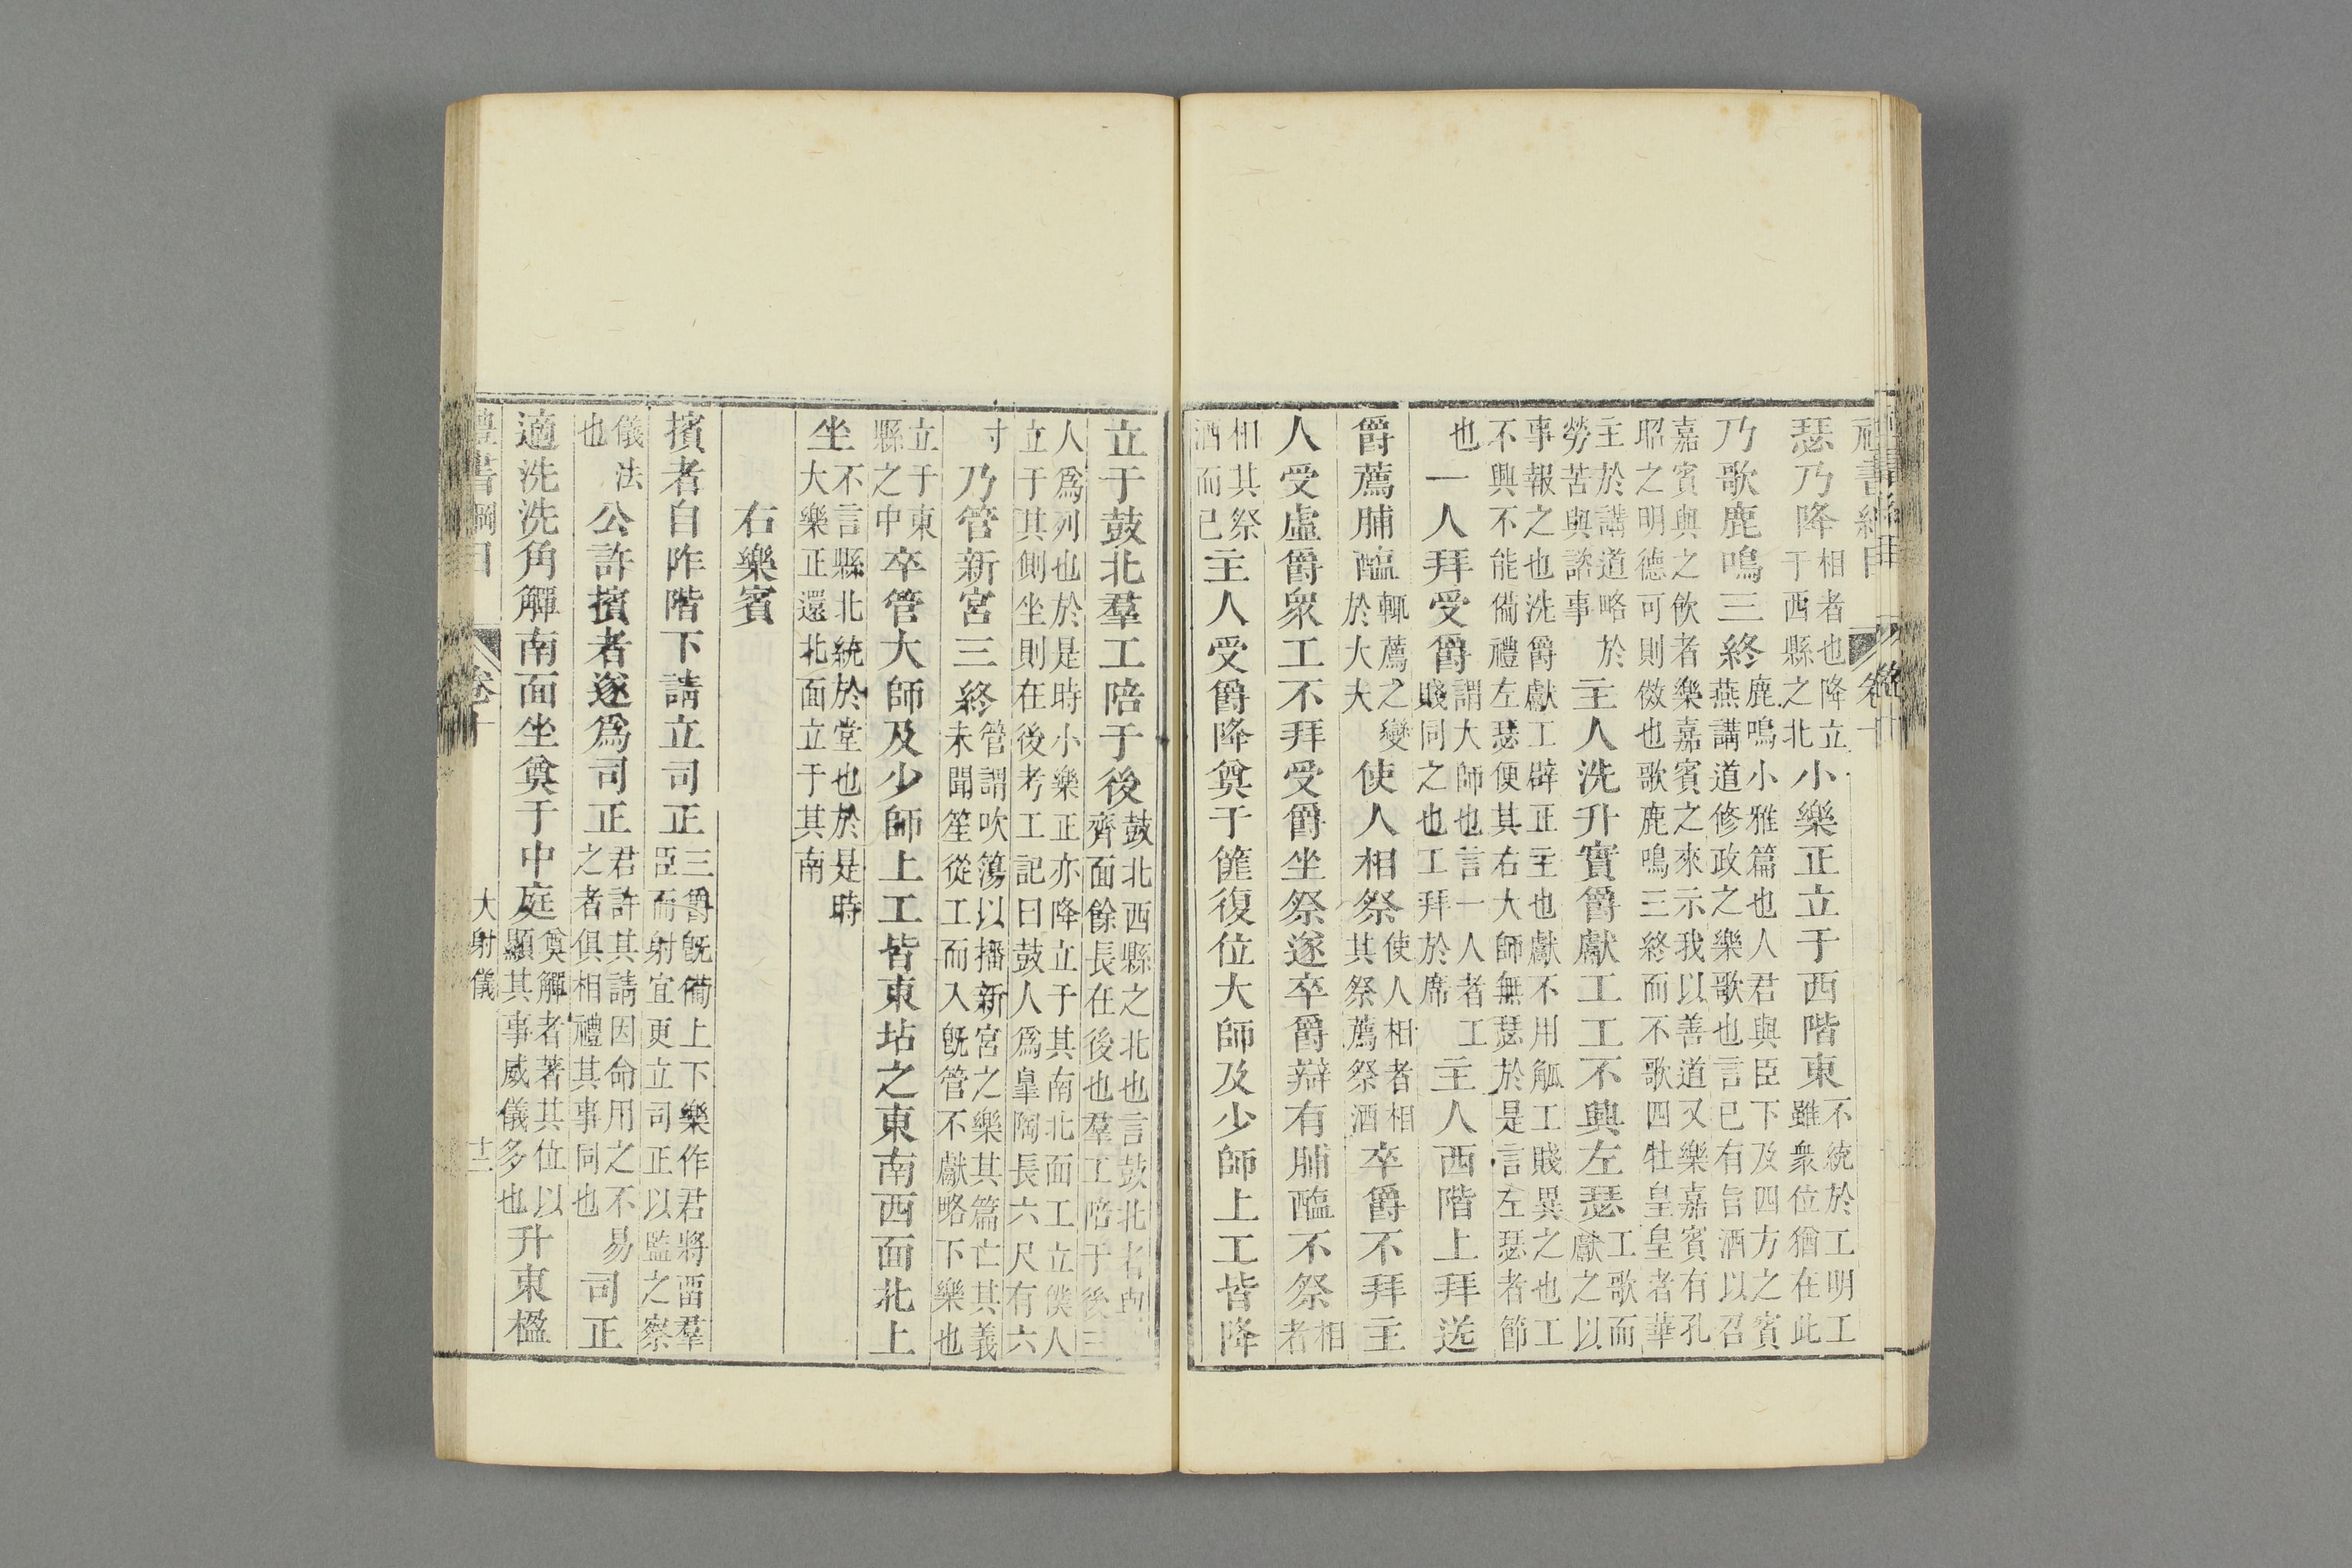 瑟乃降相者也降立于西縣之北小樂正立于西階東不統於工明工雖衆位猶在此
乃歌鹿鳴三終鹿鳴小雅篇也人君與臣下及四方之賓燕講道修政之樂歌也言已有旨酒以召
嘉賓與之飮者樂嘉賓之來示我以善道又樂嘉賓有孔昭之明德可則傚也歌鹿鳴三終而不歌四牡皇皇者華
主於講道略於勞苦與諮事主人洗升實爵獻工工不興左瑟工歌而獻之以
事報之也洗爵獻工辟正主也獻不用觚工賤異之也工不興不能備禮左瑟便其右大師無瑟於是言左瑟者節
也一人拜受爵謂大師也言一人者工賤同之也工拜於席主人西階上拜送
爵薦脯醢輒薦之變於大大使人相祭使人相者相其祭薦祭酒卒爵不拜主
人受虛爵衆工不拜受爵坐祭遂卒爵辯有脯醢不祭相者
相其祭酒而已主人受爵降奠于篚復位大師及少師上工皆降
立于鼓北羣工陪于後鼓北西縣之北也言鼓北者與鼓齊面餘長在後也羣工陪于後三
人爲列也於是時小樂正亦降立于其南北面工立僕人立于其側坐則在後考工記曰鼓人爲皐陶長六尺有六
寸乃管新宮三終管謂吹簜以播新宮之樂其篇亡其義未聞笙從工而入旣管不獻略下樂也
立于東縣之中卒管大師及少師上工皆東坫之東南西面北上
坐不言縣北統於堂也於是時大樂正還北面立于其南
右樂賓
擯者自阼階下請立司正三爵旣備上下樂作君將留羣臣而射宜更立司正以監之察
儀法也公許擯者遂爲司正君許其請因命用之不易之者俱相禮其事同也司正
適洗洗角觶南面坐奠于中庭奠觶者著其位以顯其事威儀多也升東楹
禮書綱目 卷十 大射儀